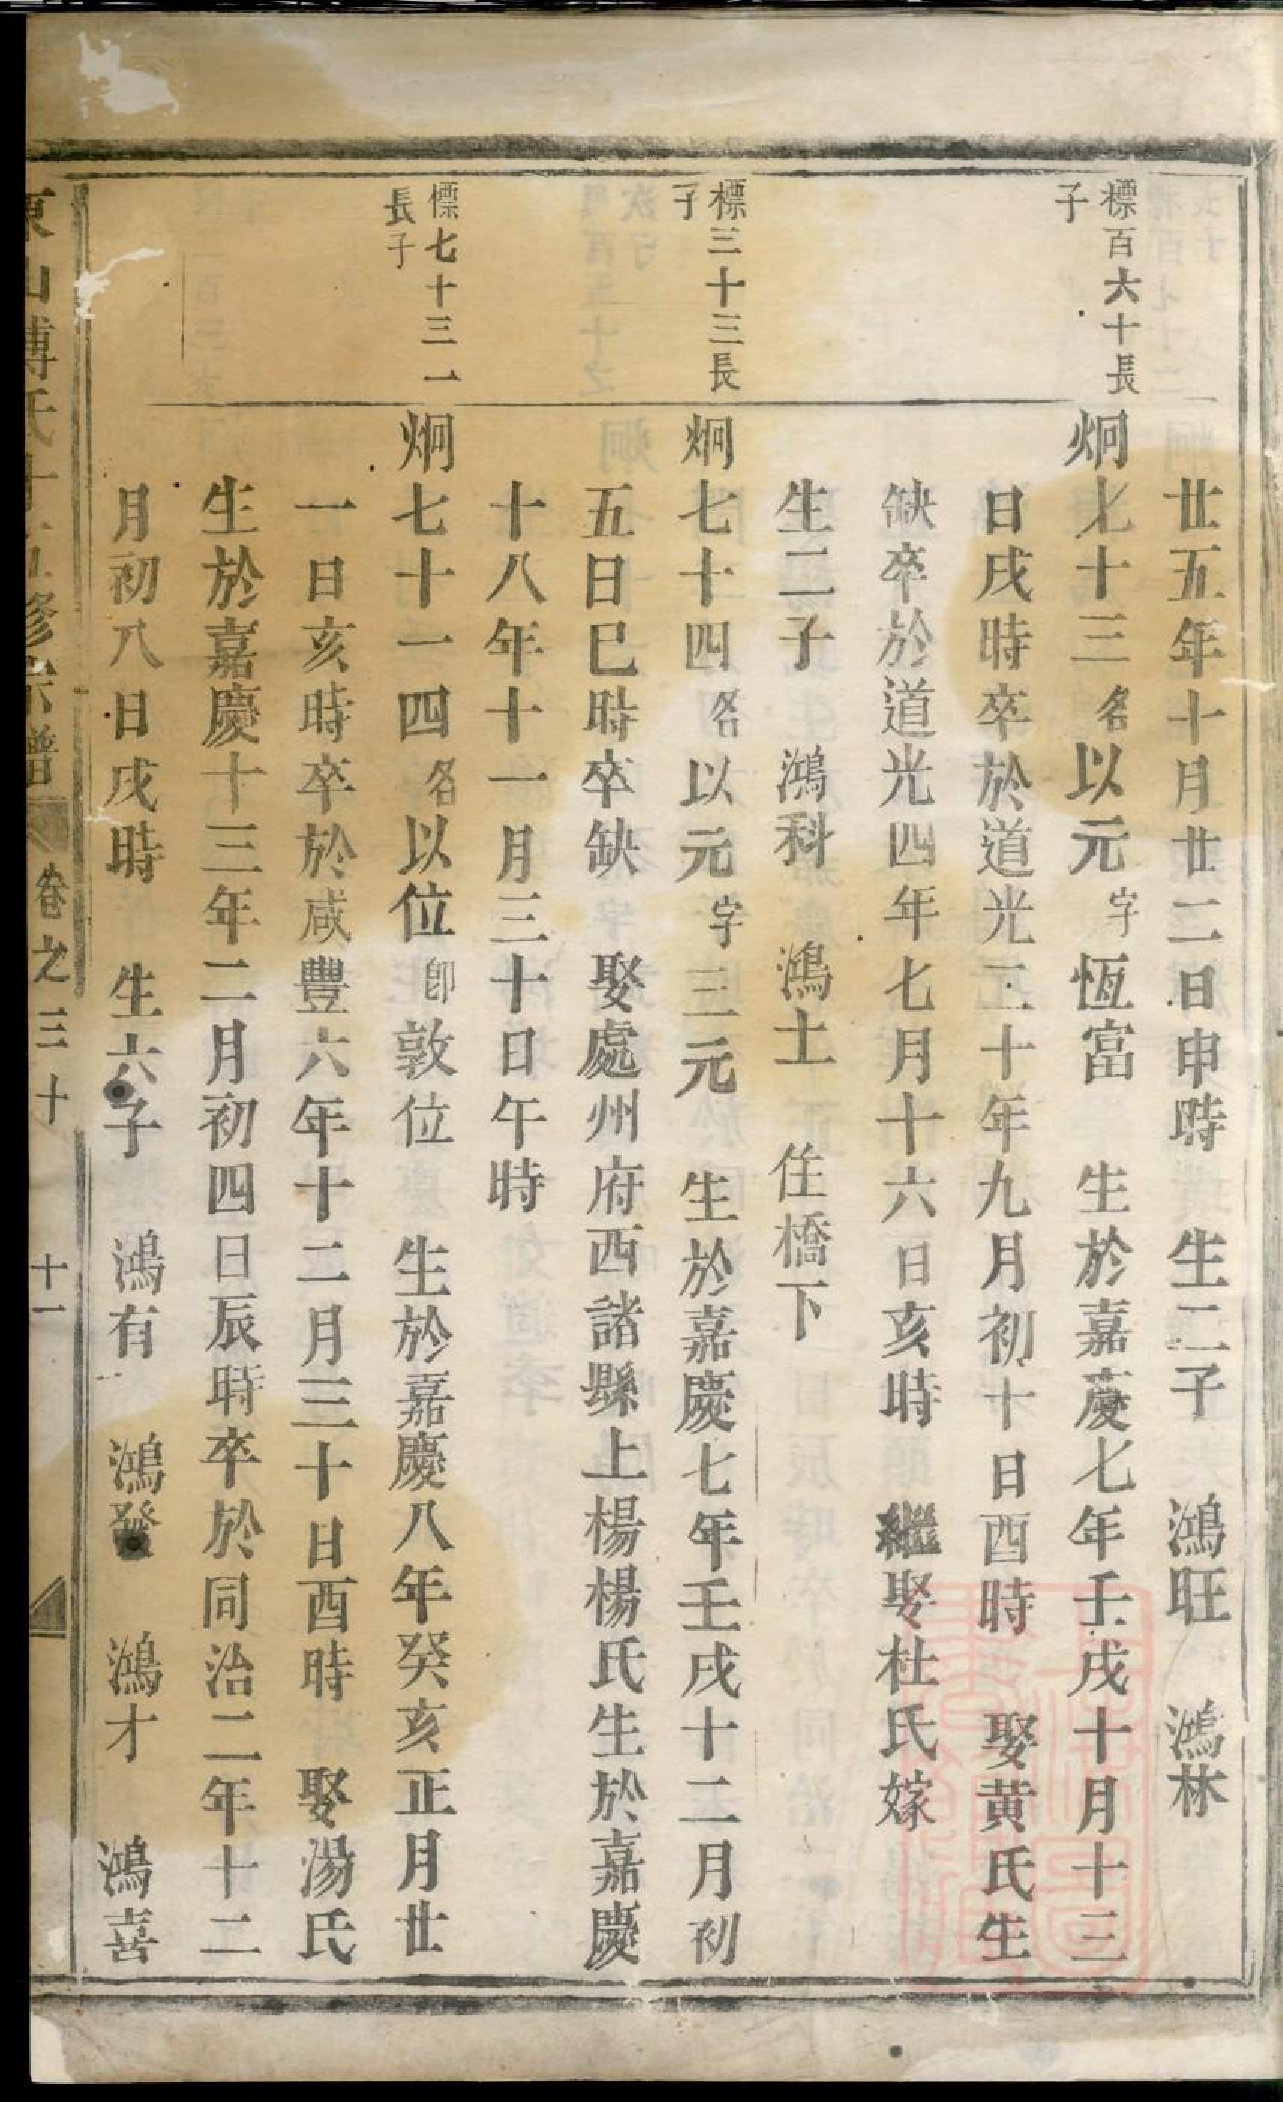 廿五年十月廿二日申時 生二子 鴻旺 鴻林
標百六十長
子
炯七十三名以元字恆富 生於嘉慶七年壬戌十月十三
日戌時卒於道光二十年九月初十日酉時 娶黄氏生
缺卒於道光四年七月十六日亥時 繼娶杜氏嫁
生二子 鴻科 鴻土 住橋下
標三十三長
子
炯七十四名以元字三元 生於嘉慶七年壬戌十二月初
五日巳時卒缺 娶處州府西諸縣上楊楊氏生於嘉慶
十八年十一月三十日午時
標七十三一
長子
炯七十一四名以位卽敦位 生於嘉慶八年癸亥正月廿
一日亥時卒於咸豐六年十二月三十日酉時 娶湯氏
生於嘉慶十三年二月初四日辰時卒於同治二年十二
月初八日戌時 生六子 鴻有 鴻發 鴻才 鴻喜
東山傅氏十 五修宗譜 卷之三十 十一